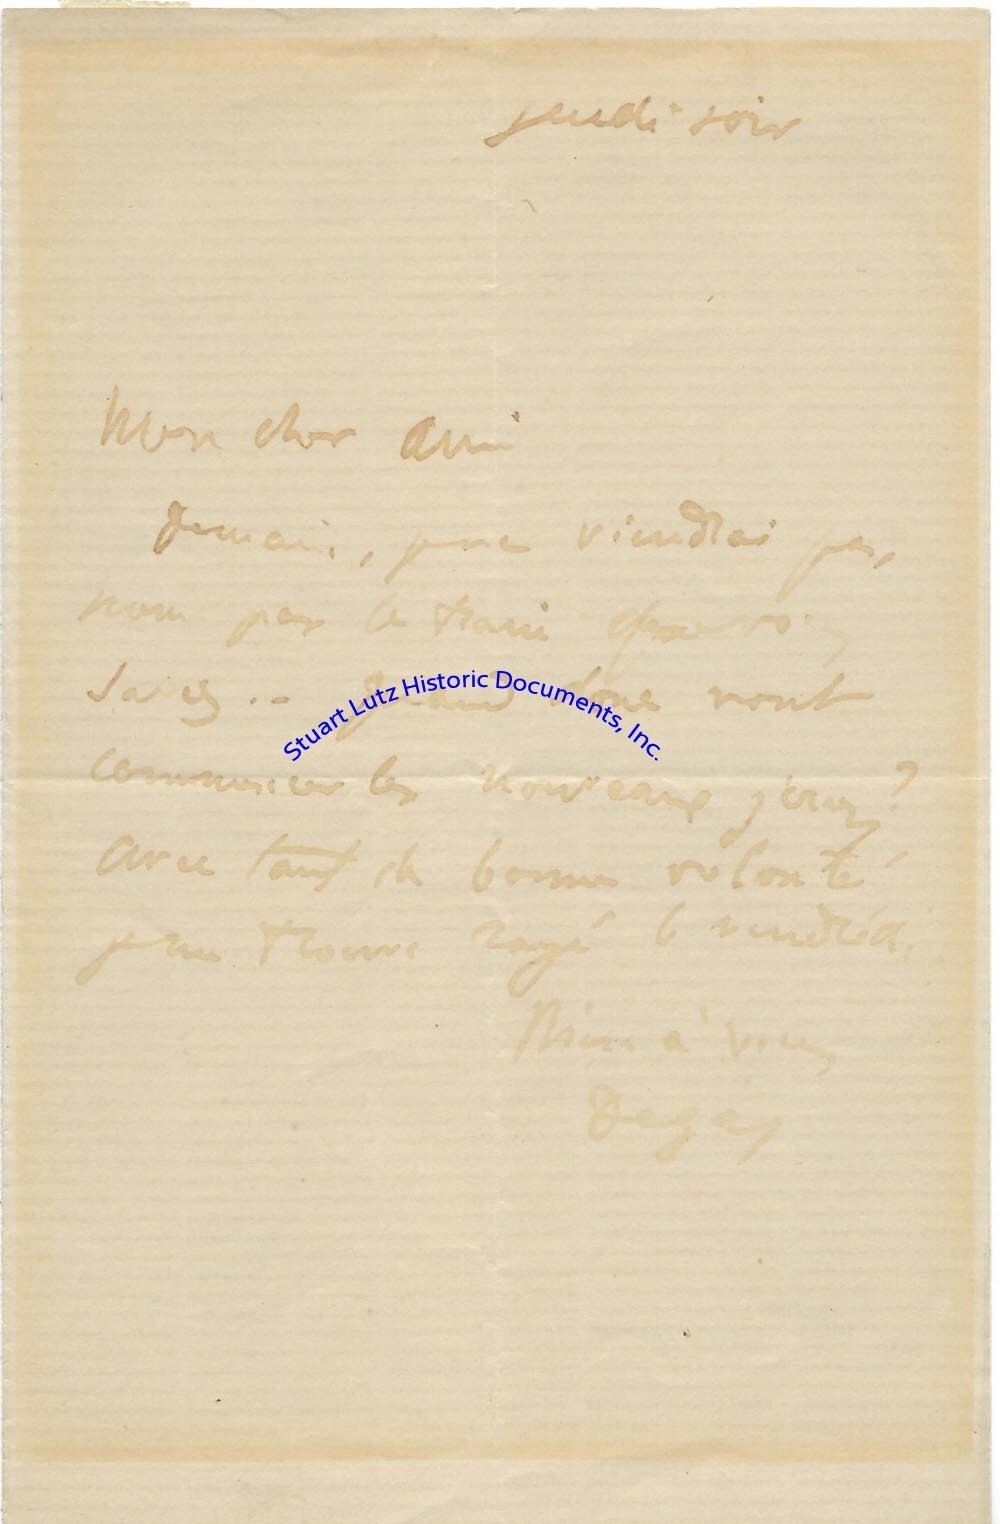 jeudi soir
Mon cher ami
Demain, je ne viendrai pas,
non pas le train que vous
savez .. Quand donc vont
commencer les nouveaux jours?
Avec tant de bonne volonté
je me trouve rayé le vendredi.
Bien à vous
Degas
Stuart Lutz Historic Documents, Inc.